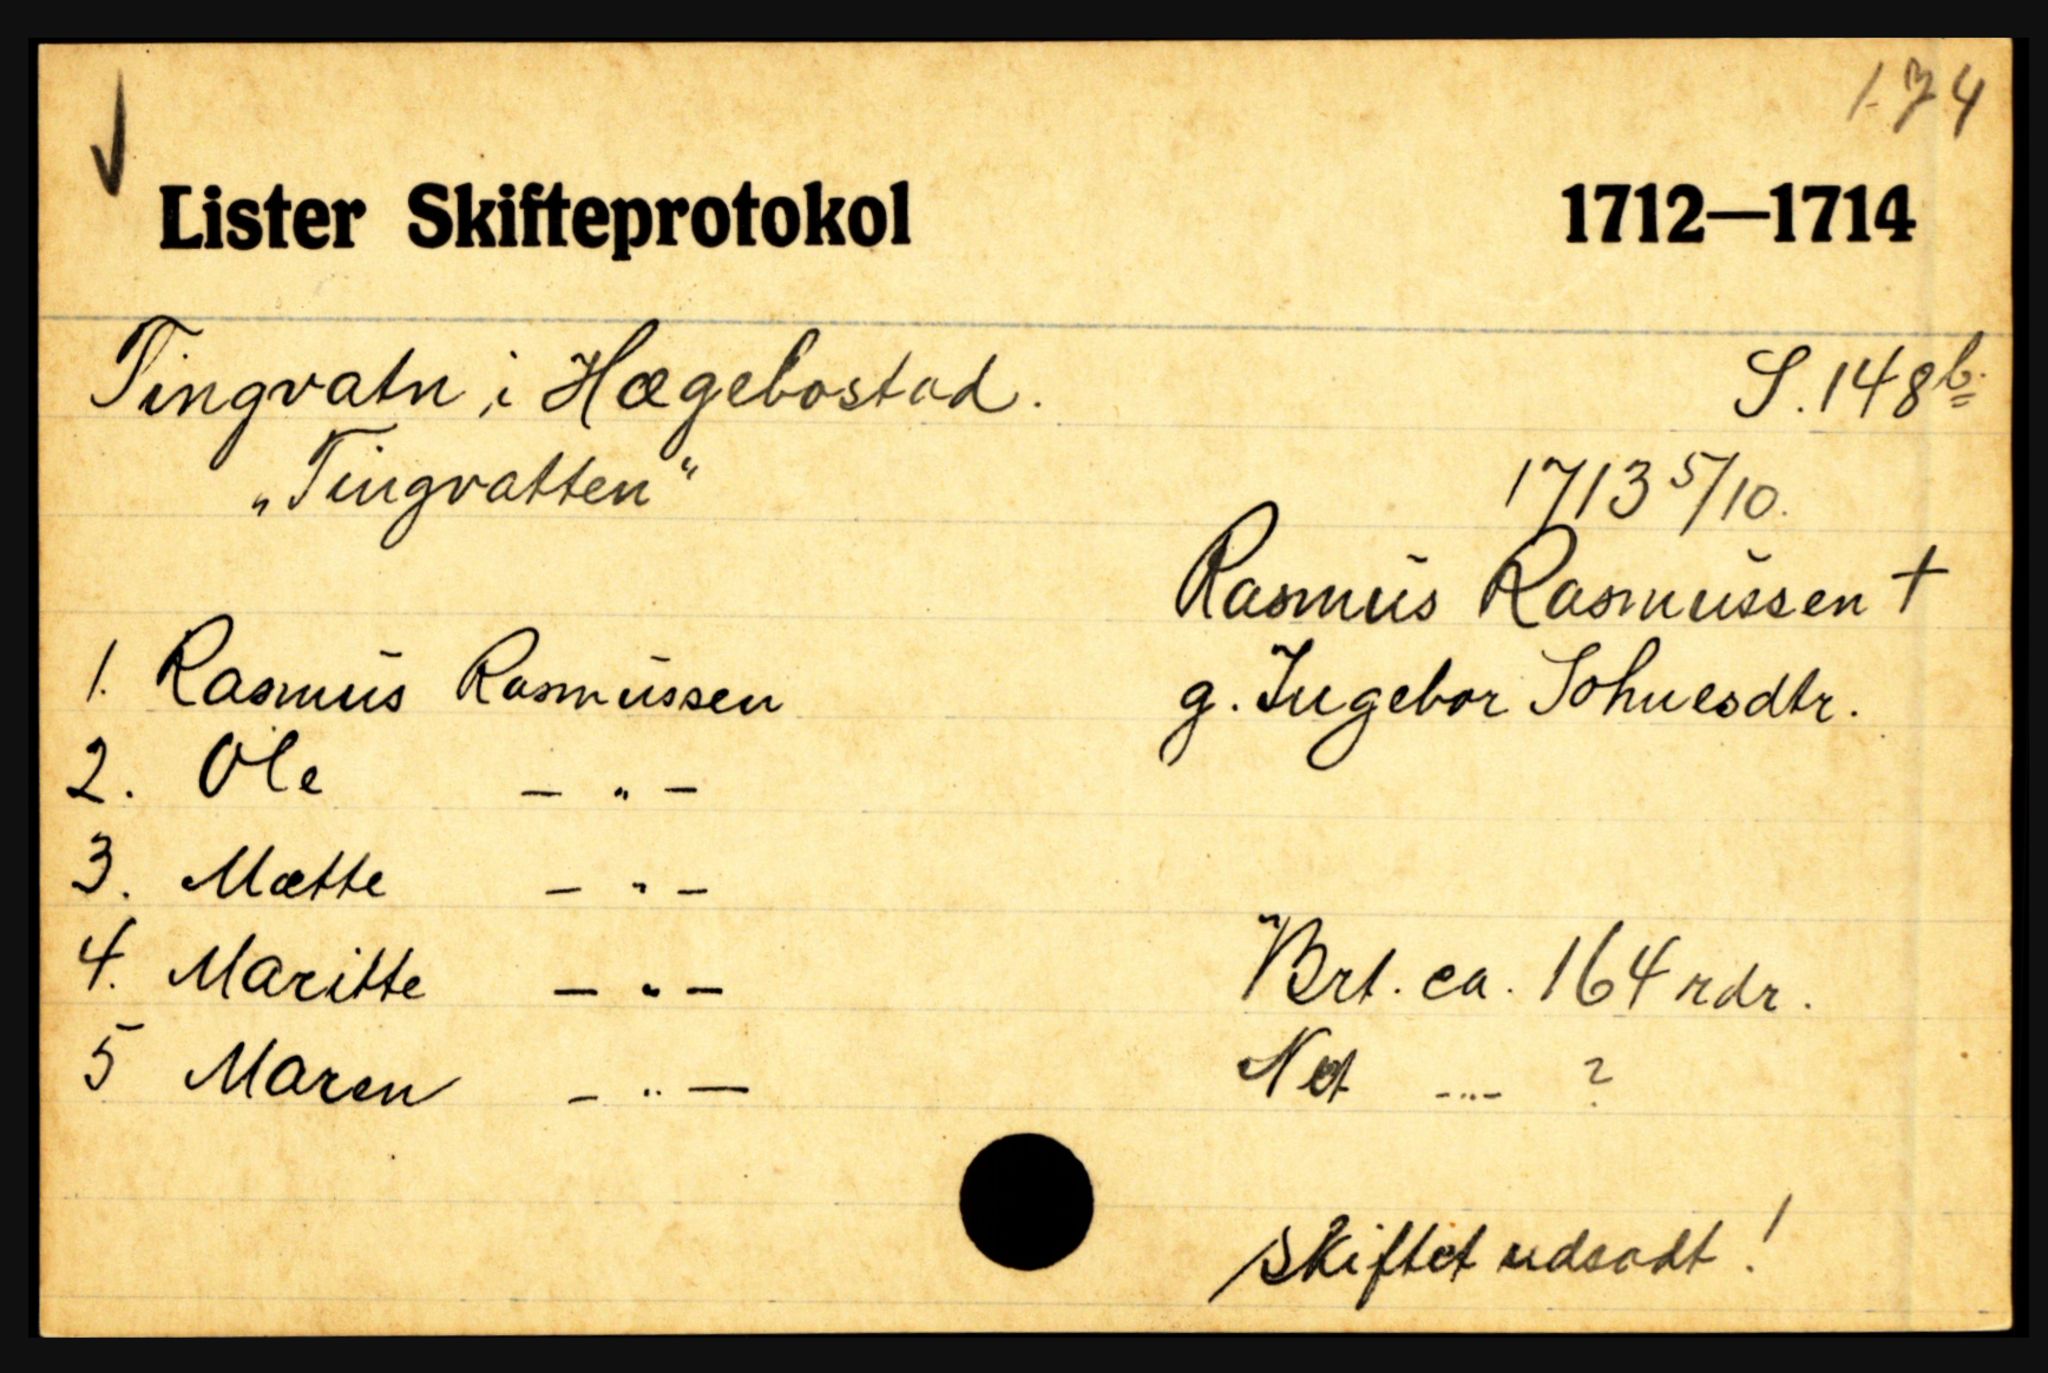 174
Lister Skifteprotokol 1712—1714
Tingvatn i Hægebostad. S. 148 b.
„Tingvatten“ 1713 5/10.
Rasmus Rasmussen +
1. Rasmus Rasmussen g. Ingebor Sohnesdtr.
2. Ole — " —
3. Mætte — " —
4. Maritte — " — Brt. ca. 164 rdr.
5 Maren — " — Net — " — ?
Skiftet udsadt!